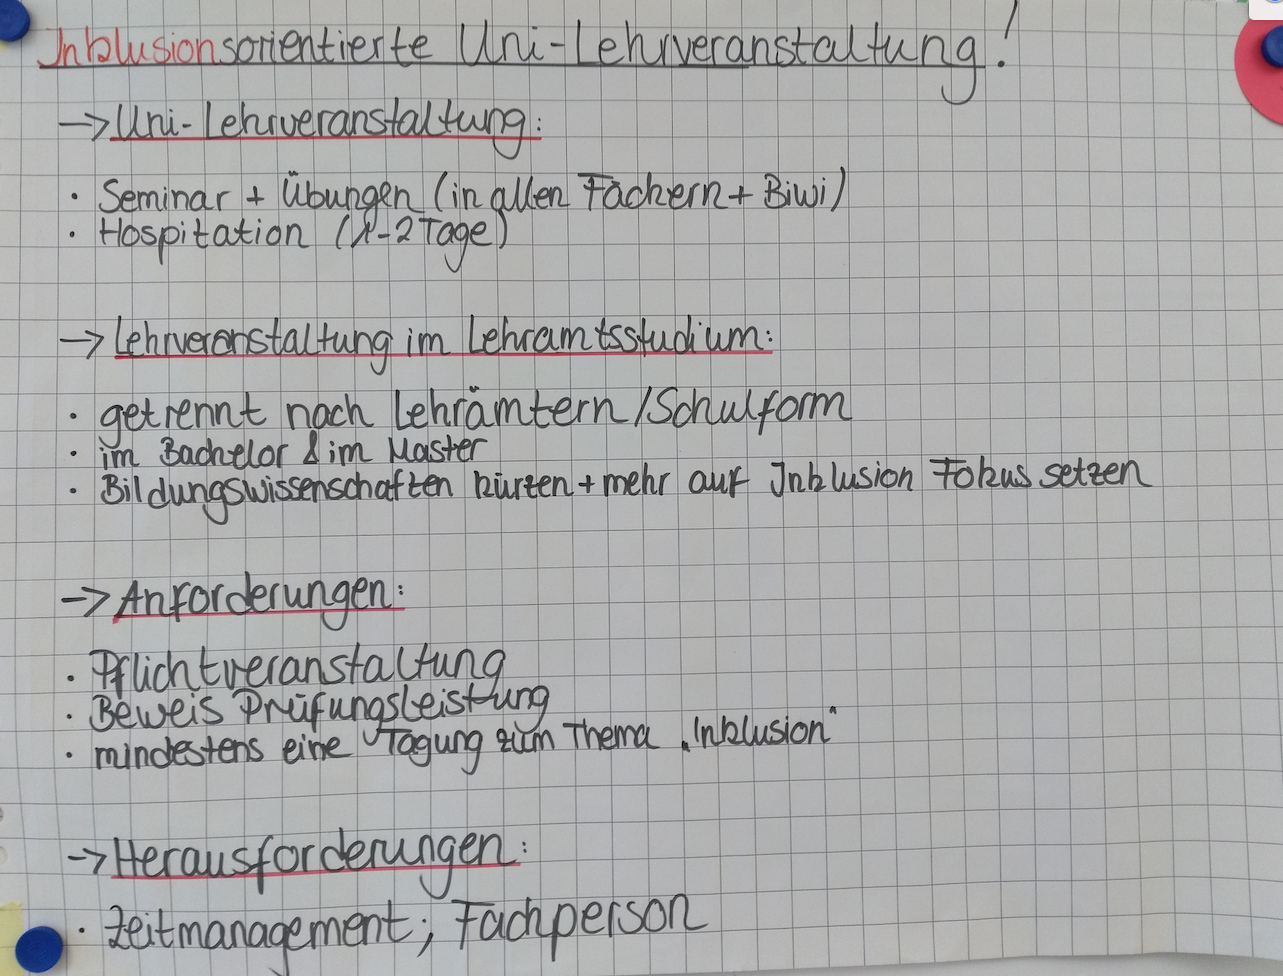 Inklusionsorientierte Uni-Lehrveranstaltung!
→ Uni-Lehrveranstaltung:
· Seminar + Übungen (in allen Fächern + Biwi)
· Hospitation (1-2 Tage)
→ Lehrveranstaltung im Lehramtsstudium:
· getrennt nach Lehrämtern/Schulform
· im Bachelor & im Master
· Bildungswissenschaften kürzen + mehr auf Inklusion Fokus setzen
→ Anforderungen:
· Pflichtveranstaltung
· Beweis Prüfungsleistung
· mindestens eine Tagung zum Thema „Inklusion“
→ Herausforderungen:
· Zeitmanagement; Fachperson